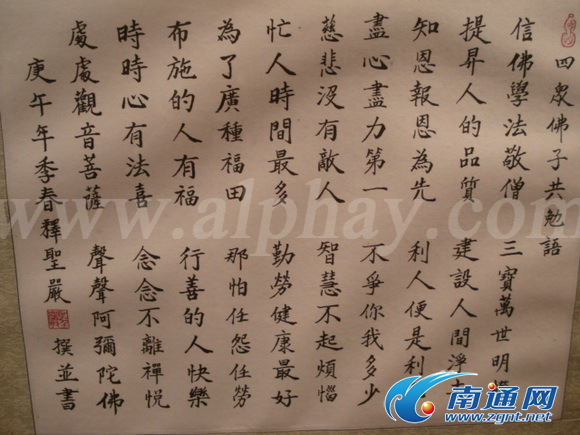 四眾佛子共勉語
信佛學法敬僧 三寶萬世明燈
提昇人的品質 建設人間淨土
知恩報恩為先 利人便是利
盡心盡力第一 不爭你我多少
慈悲沒有敵人 智慧不起煩惱
忙人時間最多 勤勞健康最好
為了廣種福田 那怕任怨任勞
布施的人有福 行善的人快樂
時時心有法喜 念念不離禪悅
處處觀音菩薩 聲聲阿彌陀佛
庚午年季春釋聖嚴 撰並書
www.alphay.com
南通网
www.zgnt.net